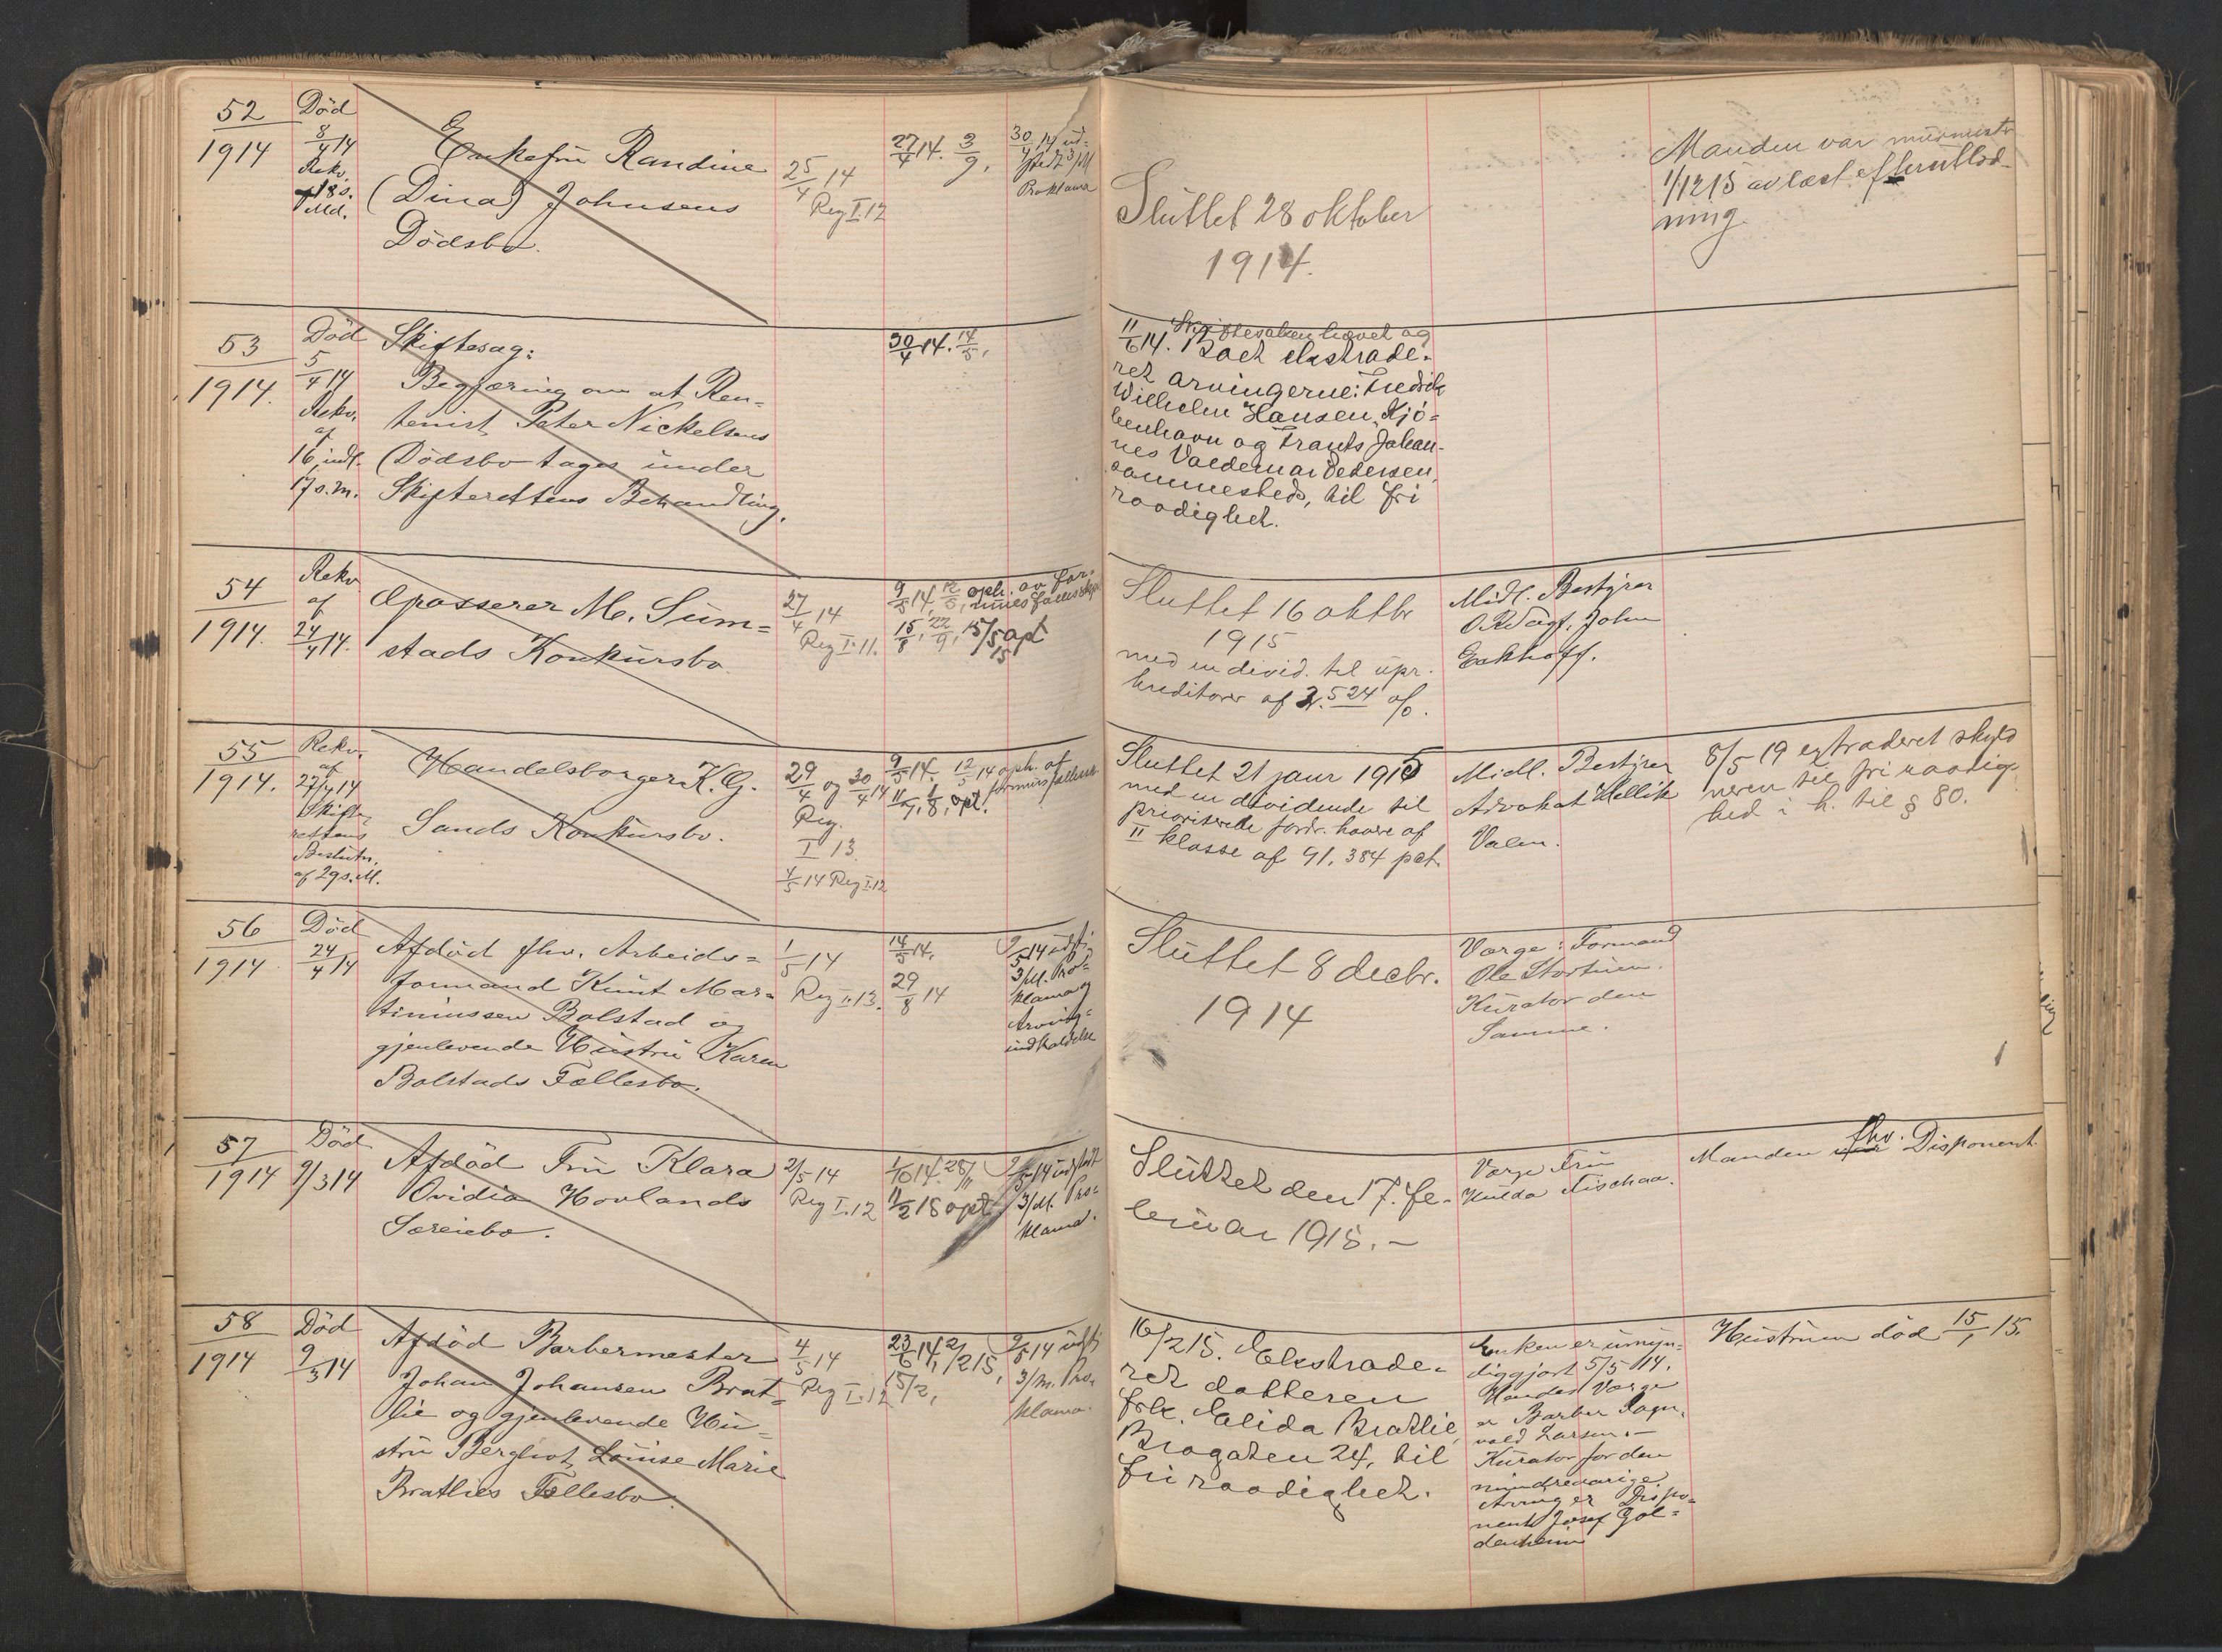 52
1914
Død
8/4 14
Rekv.
18 s.
Md.
Enkefru Randine
(Dina) Johnsens
Dödsbo.
25/4 14
Reg I.12
27/4 14. 3/9,
30/4 14 ud-
stedt 3/M
Proklama
Sluttet 28 oktober
1914.
Manden var murmestr
1/12 15 avlæst efterutlod-
ning.
53
1914.
Død
5/4 14
Rekv.
af
16, indl.
17 s. m.
Skiftesag:
Begjæring om at Ren-
tenist Peter Nickelsens
Dödsbo tages under
Skifterettens Behandling.
30/4 14. 14/5,
11/6 14. Skiftesaken hævet og
Boet ekstrade-
ret arvingerne: Fredrik
Wilhelm Hansen, Kjö-
benhavn og Frants Johan-
nes Valdemar Pedersen,
sammesteds, til fri
raadighet.
54
1914.
Rekv
af
24/4 14.
Opasserer M. Sum=
stads Konkursbo
27/4 14
Reg I. 11.
9/5 14, 12/5, oph. av for-
mues fællesskap
15/8, 22/9, 15/5 15 opt
Sluttet 16 oktbr
1915
med en divid. til upr.
kreditorer af 2.524 o/o.
Midl. Bestyrer
O.R.Sagf. John
Eckhoff.
55
1914.
Rekv.
af
27/4 14
Skifte-
rettens
Beslutn.
af 29 s. M.
Handelsborger K. G.
Sands Konkursbo.
29/4 og 30/4 14
Reg.
I 13
4/5 14 Reg I.12
9/5 14. 12/5 14 oph. af
formuesfællessk
11/7, 1/8, opt.
Sluttet 21 janr 1915
med en dividende til
prioriterede fordr. havere af
II klasse af 91.384 pct.
Midl. Bestyrer
Advokat Hellik
Valen.
8/5 19 extraderet skyld
neren til fri raadig-
hed i h. til § 80.
56
1914
Død
24/4 14
Afdöd fhv. Arbeids=
formand Knut Mar=
tiniussen Bolstad og
gjenlevende Hustru Karen
Bolstads Fællesbo.
1/5 14
Reg I.13.
14/5 14,
29/8 14
9/5 14 udst
3/M. Pro-
klama og
Arving=
indkaldelse
Sluttet 8 decbr.
1914
Værge: Formand
Ole Stortuen.
Kurator den
Samme.
57
1914
Død
9/3 14
Afdöd Fru Klara
Ovidia Hovlands
Særeiebo.
2/5 14
Reg I.12
1/10 14. 28/11
11/2 18 opt
9/5 14 udstedt
3/M. Pro-
klama.
Sluttet den 17. fe-
bruar 1918. —
Værge Fru
Hulda Tischaa.
Manden fhv. Disponent
58
1914
Død
9/3 14
Afdöd Barbermester
Johan Johansen Brat-
lie og gjenlevende Hu-
stru Bergliot Louise Marie
Bratlies Fællesbo.
4/5 14
Reg I.12
23/6 14, 2/2 15,
15/2,
9/5 14 udst
3/M. Pro-
klama.
16/2 15. Ekstrade-
ret datteren
frk. Elida Bratlie,
Bragaten 24, til
fri raadighet.
Enken er umyn-
diggjort 5/5 14.
Hendes Værge
er Barber Ragn-
vald Larsen. —
Kurator for den
mindreaarige
Arving er Dispo-
nent Josef Gol-
denheim
Hustruen død 15/1 15.